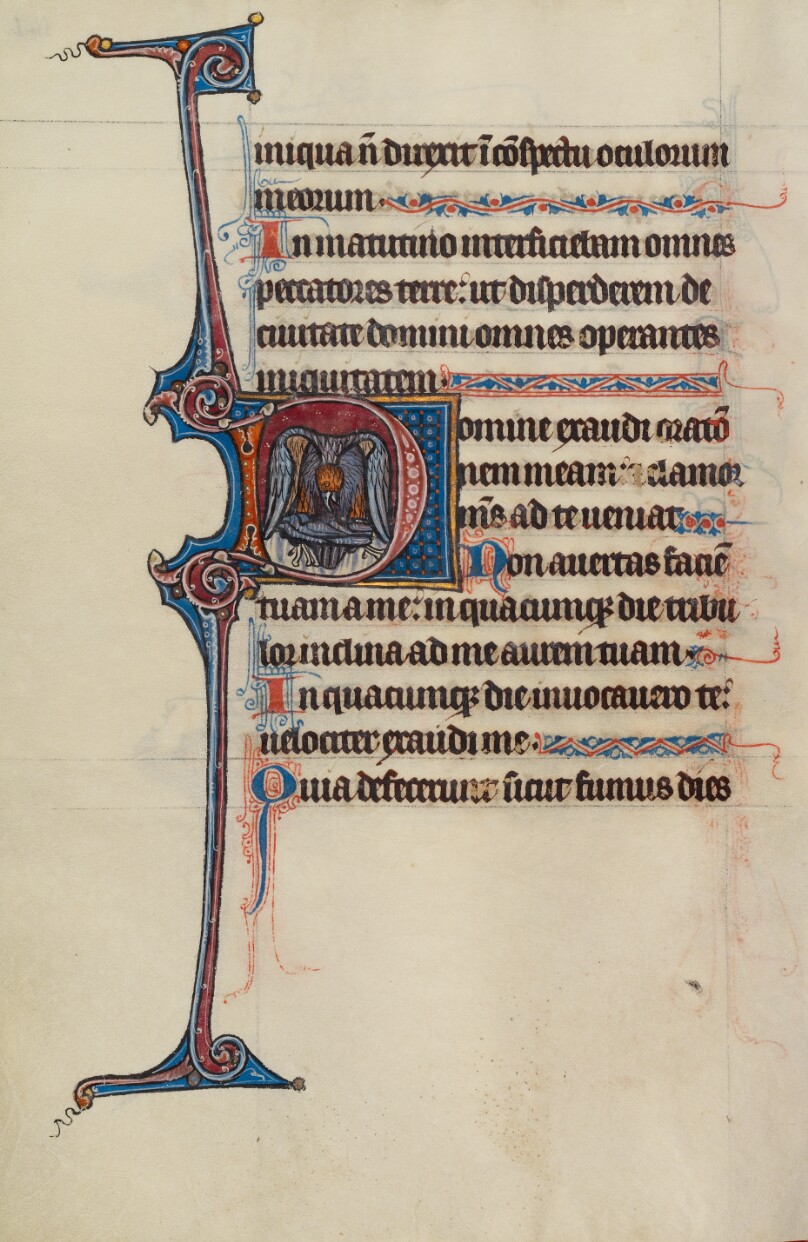 iniqua n̄ direxit ī cōspectu oculorum
meorum.
In matutino interficiebam omnes
peccatores terre: ut disperderem de
ciuitate domini omnes operantes
iniquitatem.
Domine exaudi oratō
nem meam: clamor
m̄s ad te ueniat
Non auertas faciē
tuam a me: in quacumqꝫ die tribu
lor inclina ad me aurem tuam
In quacumqꝫ die inuocauero te:
uelociter exaudi me.
Quia defecerunt sicut fumus dies